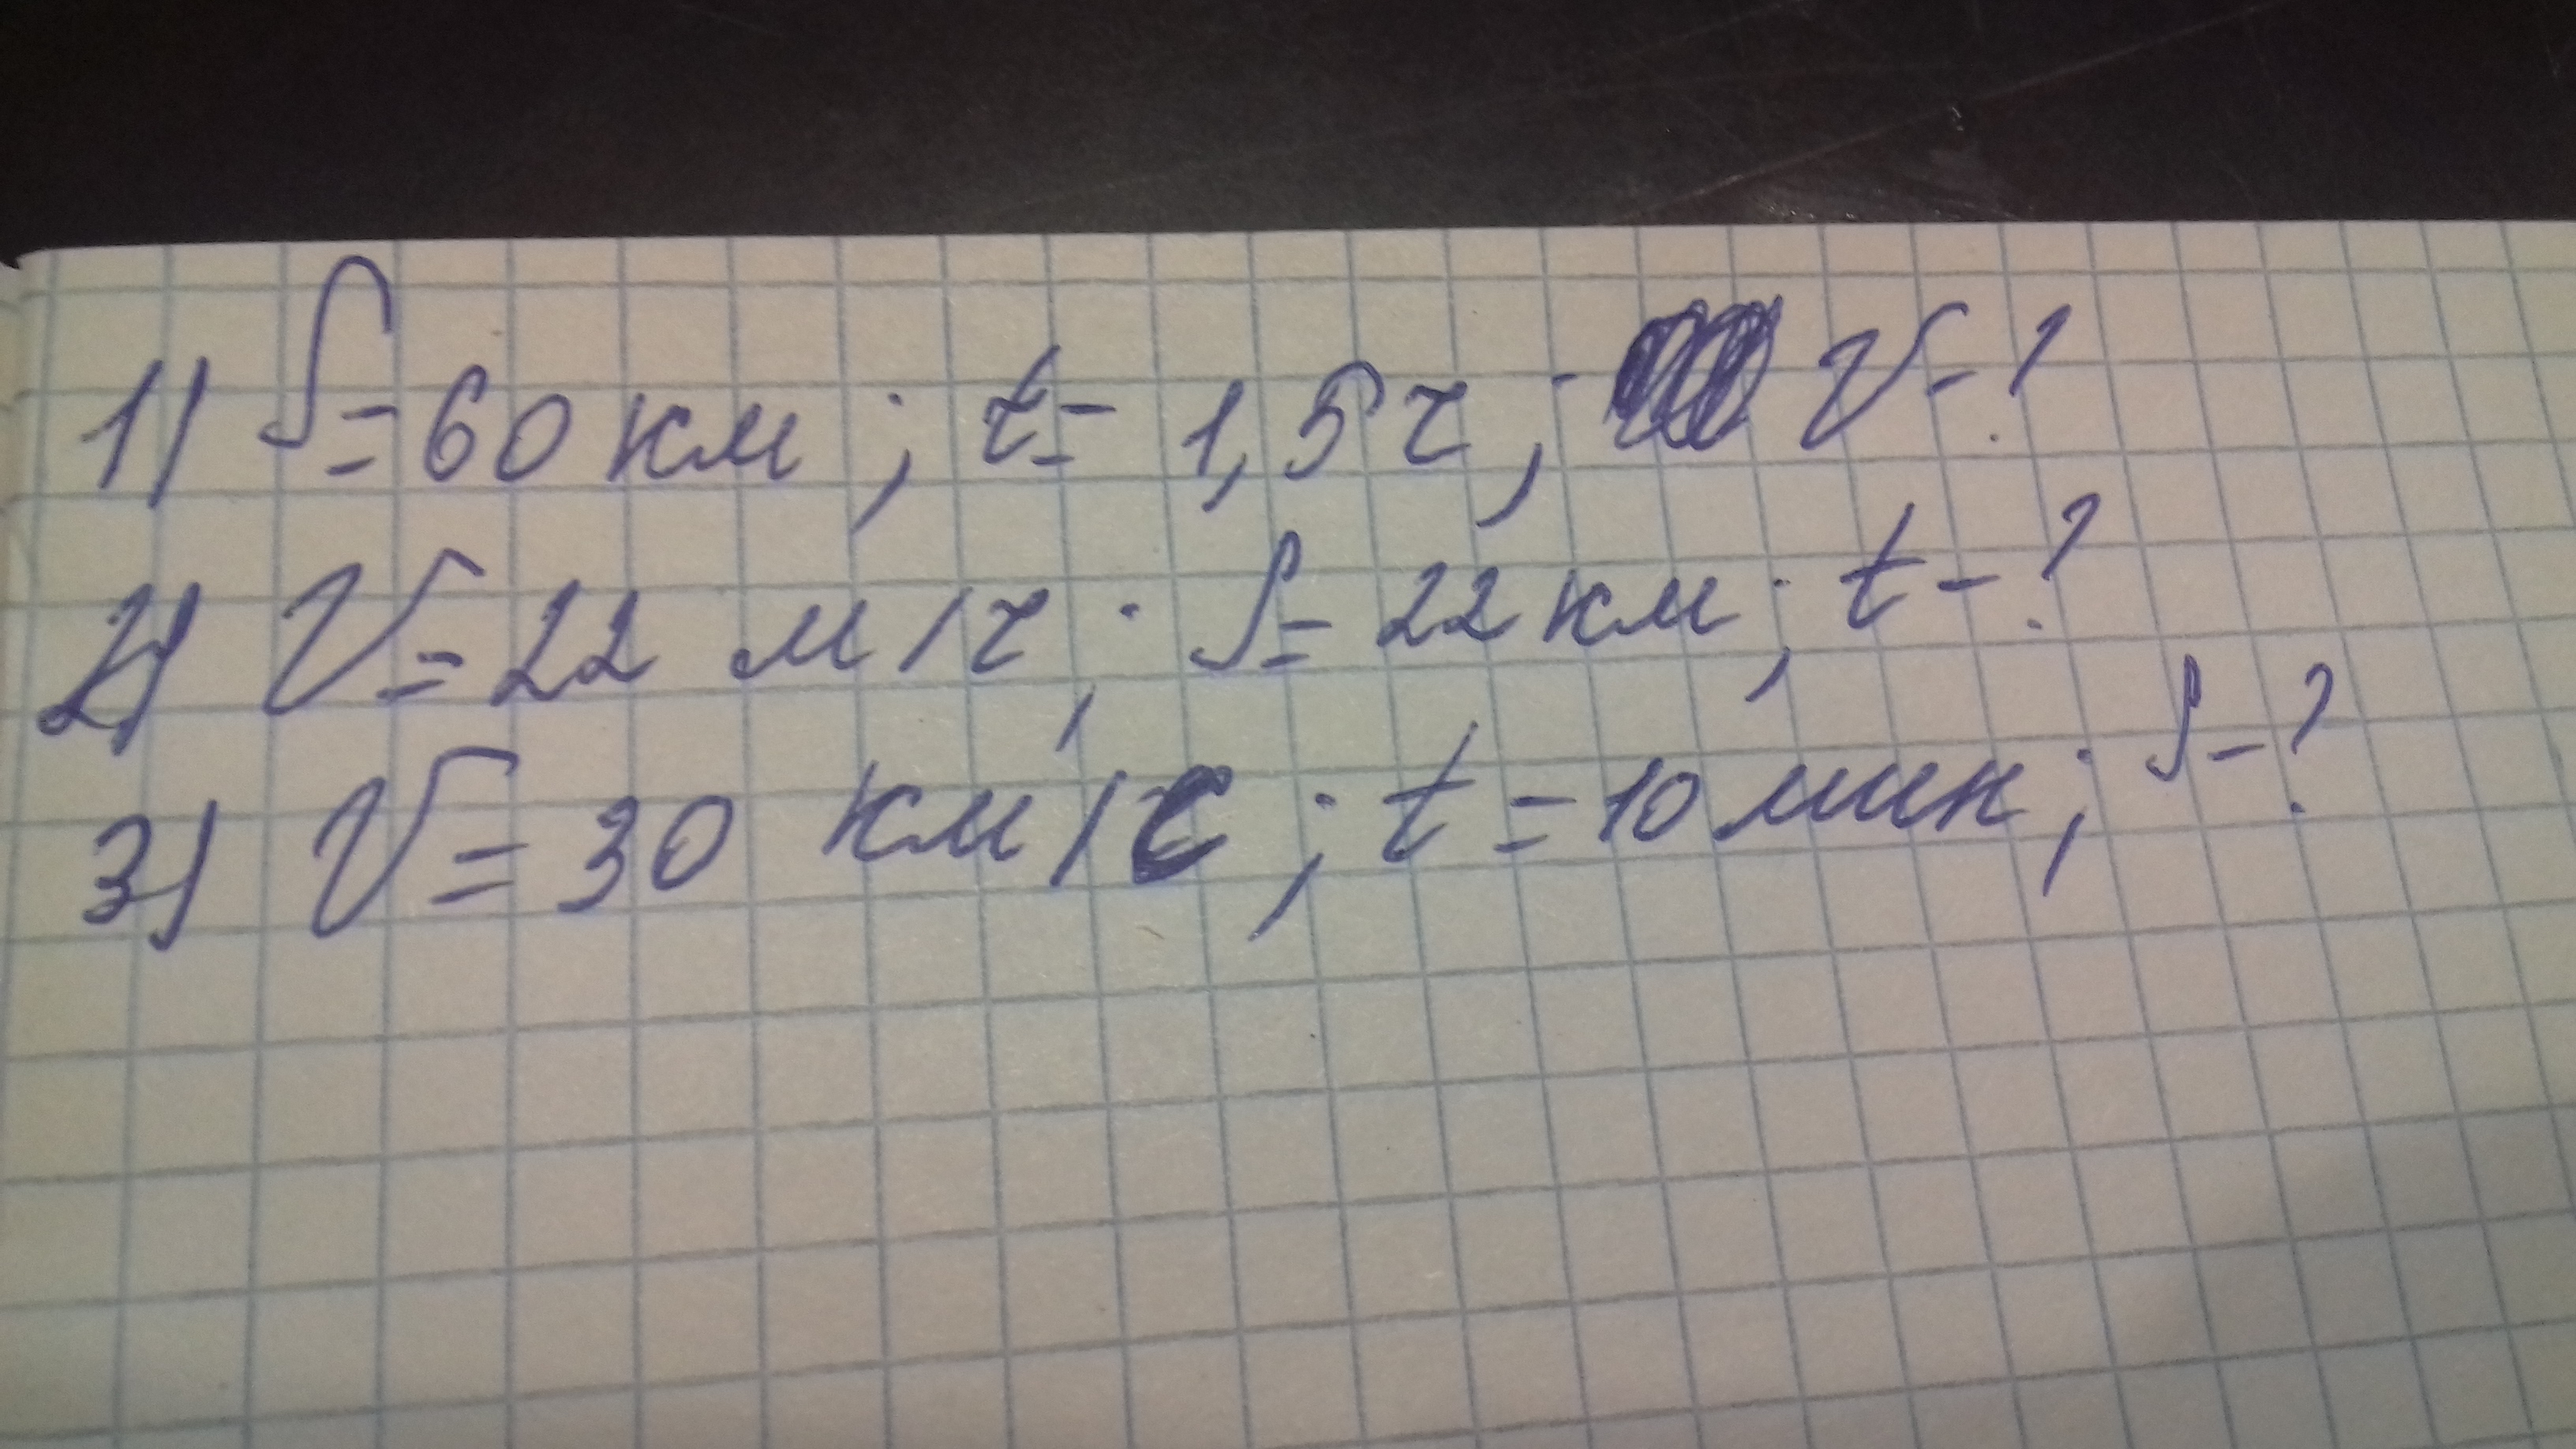 1) S=60 км; t= 1,5 ч; V-?
2) V=22 м/ч; S=22 км; t-?
3) V=30 км/с; t=10 мин; S-?